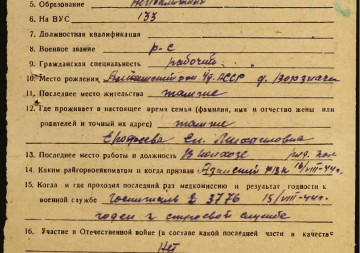 5. Образование
6. На ВУС 133
7. Должностная квалификация
8. Военное звание р-с
9. Гражданская специальность рабочий
10. Место рождения Уд. АССР д.
11. Последнее место жительства тамже
12. Где проживает в настоящее время семья (фамилия, имя и отчество жены или
родителей и точный адрес) тамже
Ерофеева Ел. Михайловна
13. Последнее место работы и должность В колхозе ряд. кол.
14. Каким райгорвоенкоматом и когда призван РВК 16/VIII-44г.
15. Когда и где проходил последний раз медкомиссию и результат годности к
военной службе Госпиталь № 3776 15/VIII-44г.
годен к строевой службе
16. Участие в Отечественной войне (в составе какой последней части и качестве)
Нет